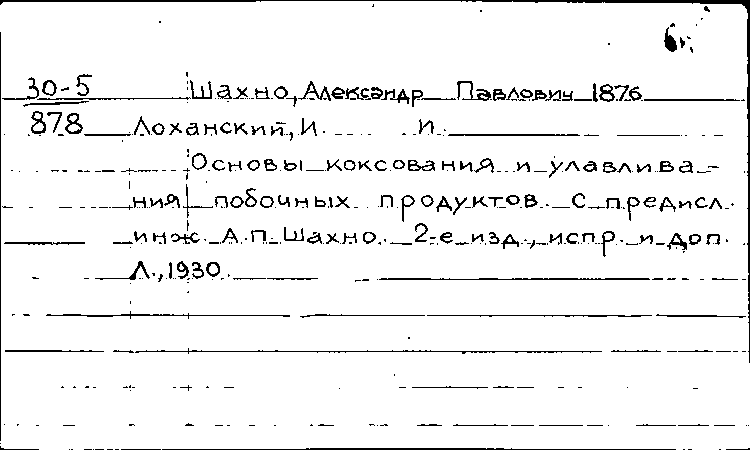 30-5 Шахно, Александр Павлович 1876
878 Лоханский, И. И.
Основы коксования и улавлива-
ния побочных продуктов. С предисл.
инж. А.П. Шахно. 2-е изд., испр. и доп.
Л., 1930.